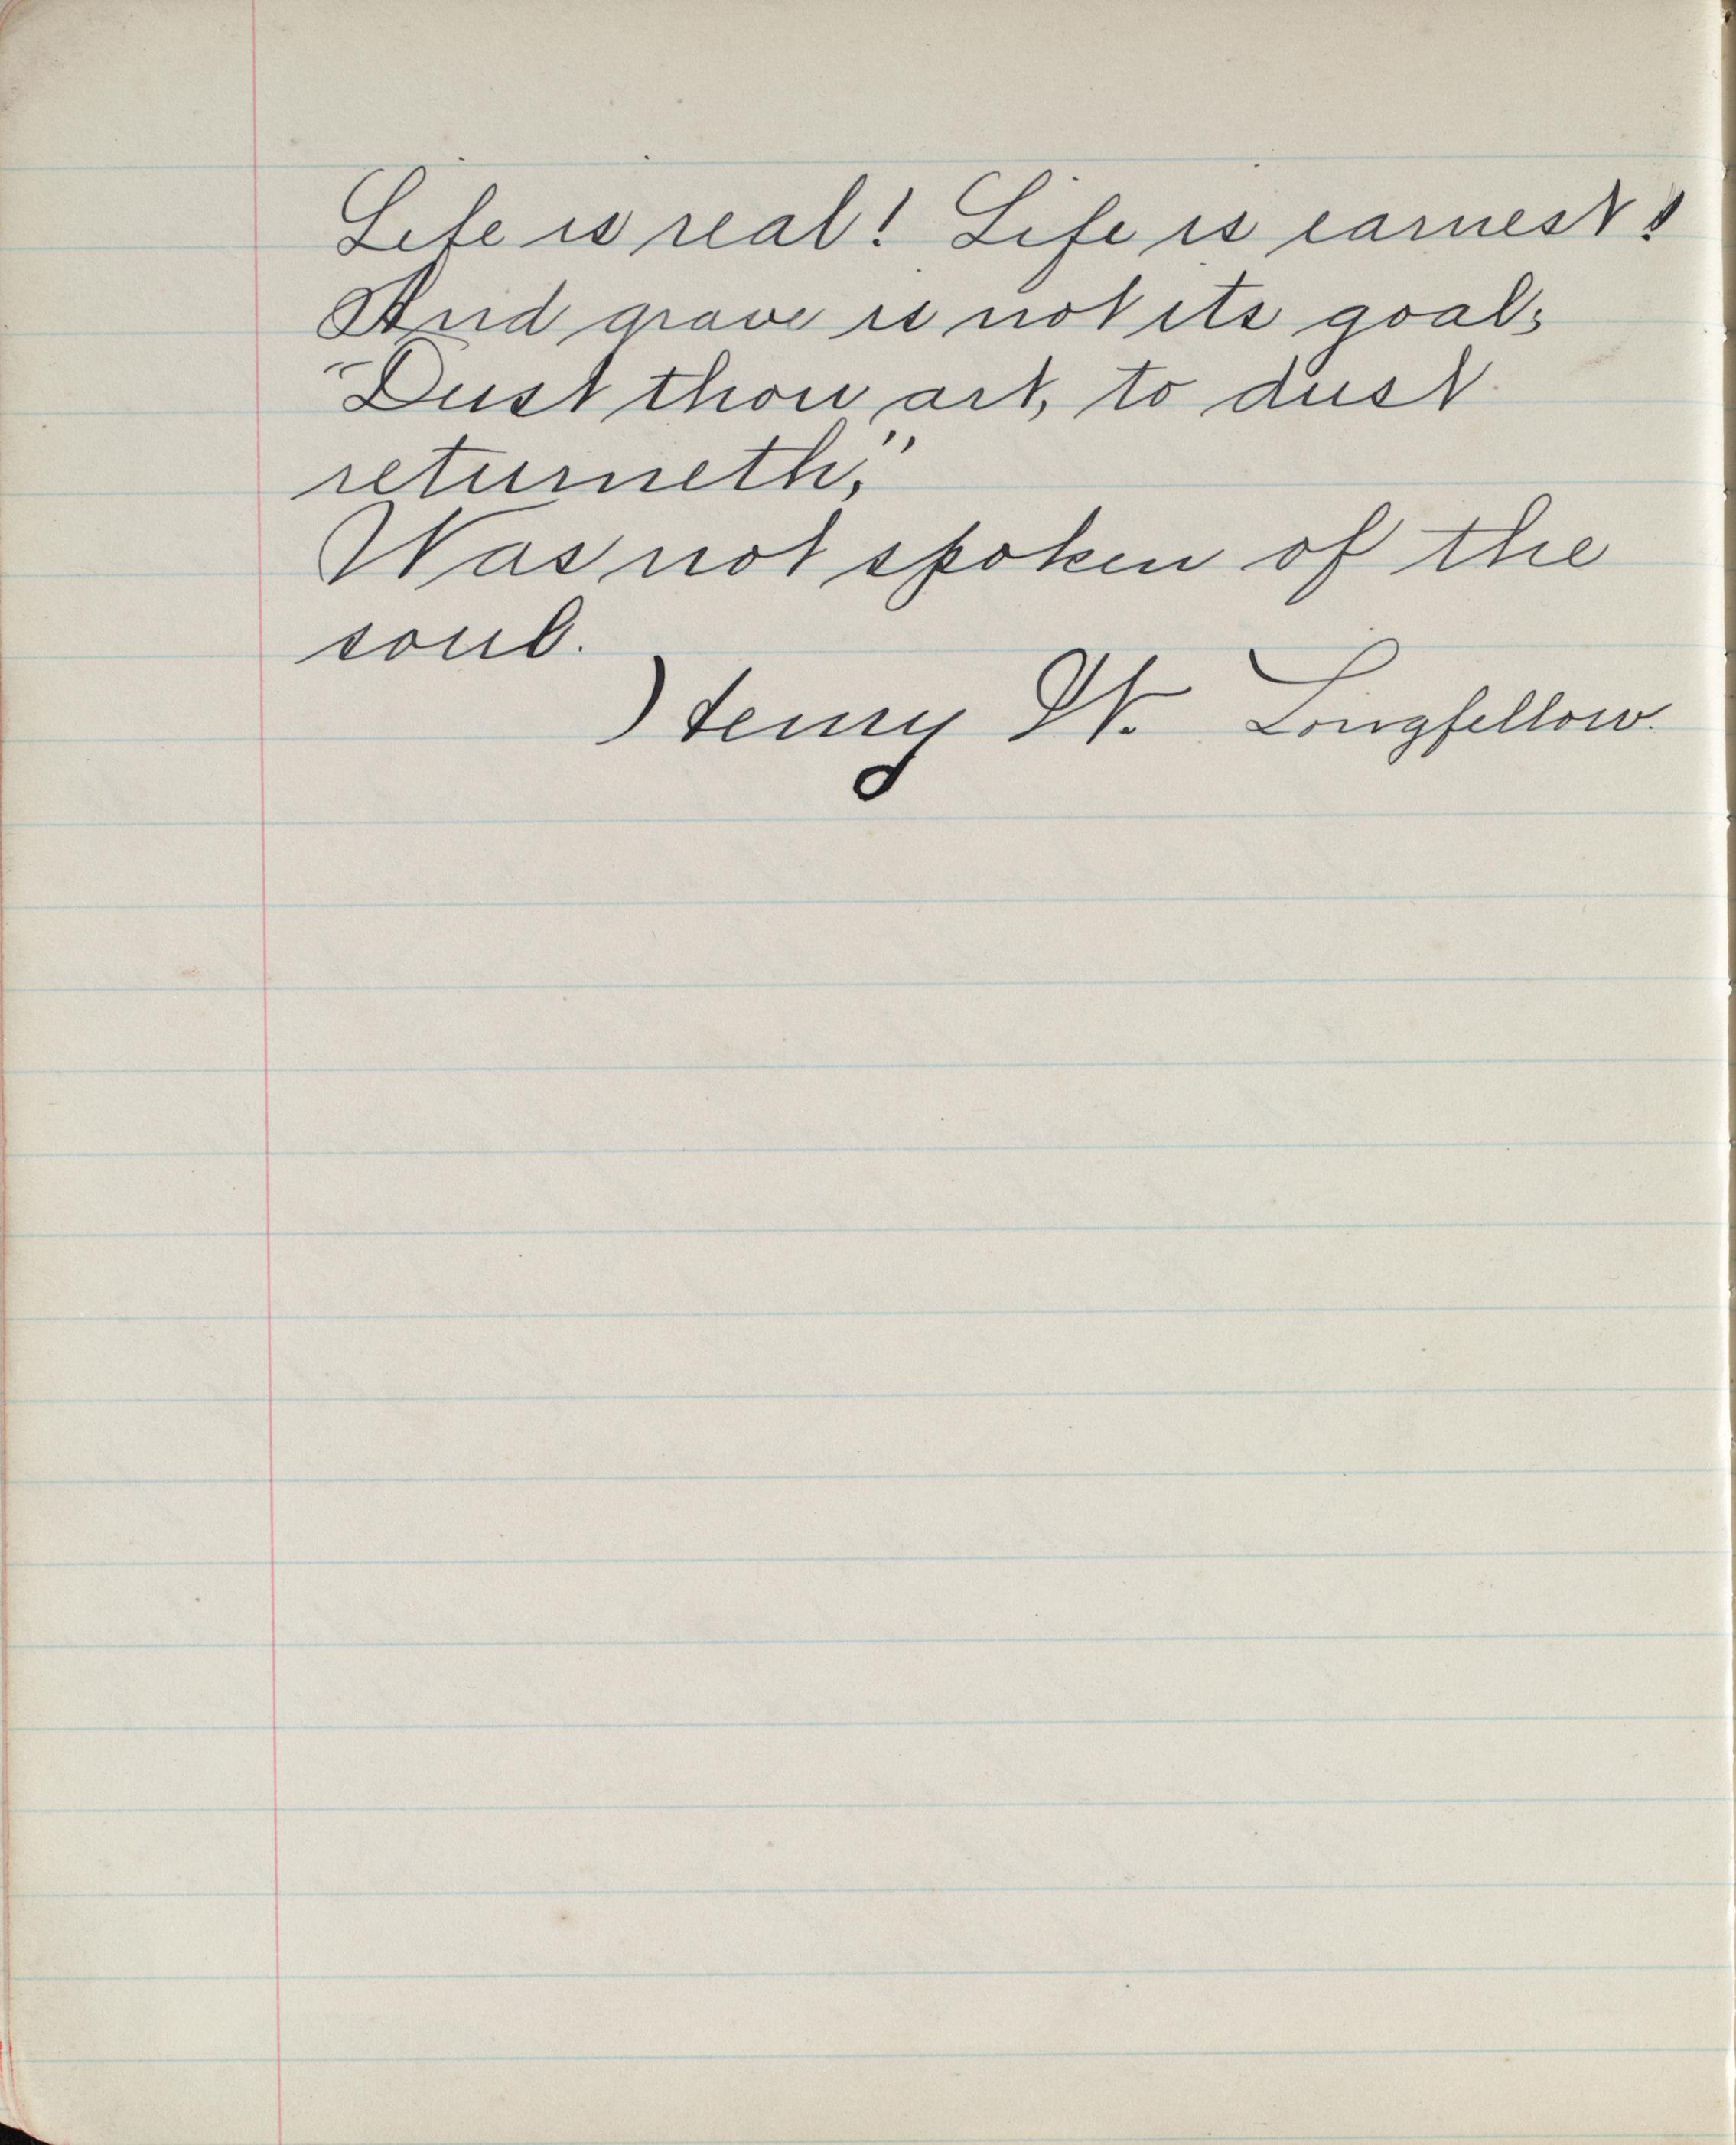 Life is real! Life is earnest!
And grave is not its goal;
"Dust thou art, to dust
returneth,"
Was not spoken of the
soul.
Henry W. Longfellow.